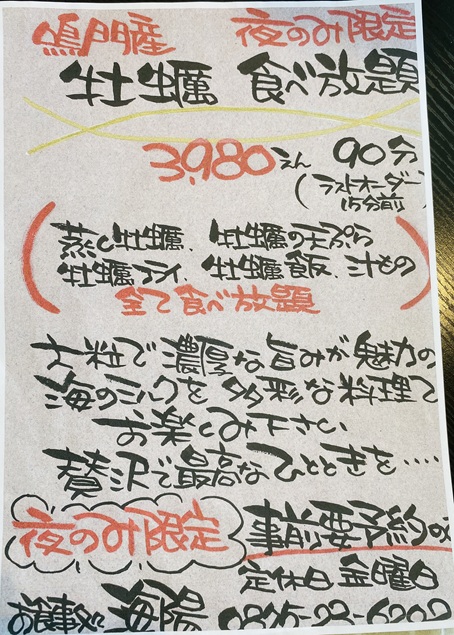 鳴門産 夜のみ限定
牡蠣 食べ放題
3,980えん 90分
(ラストオーダー
15分前)
蒸し牡蠣、牡蠣の天ぷら
牡蠣フライ、牡蠣飯、汁もの
全て食べ放題
大粒で濃厚な旨みが魅力の
海のミルクを多彩な料理で
お楽しみ下さい
贅沢で最高なひとときを…
夜のみ限定 事前要予約
定休日 金曜日
お食事処 海陽